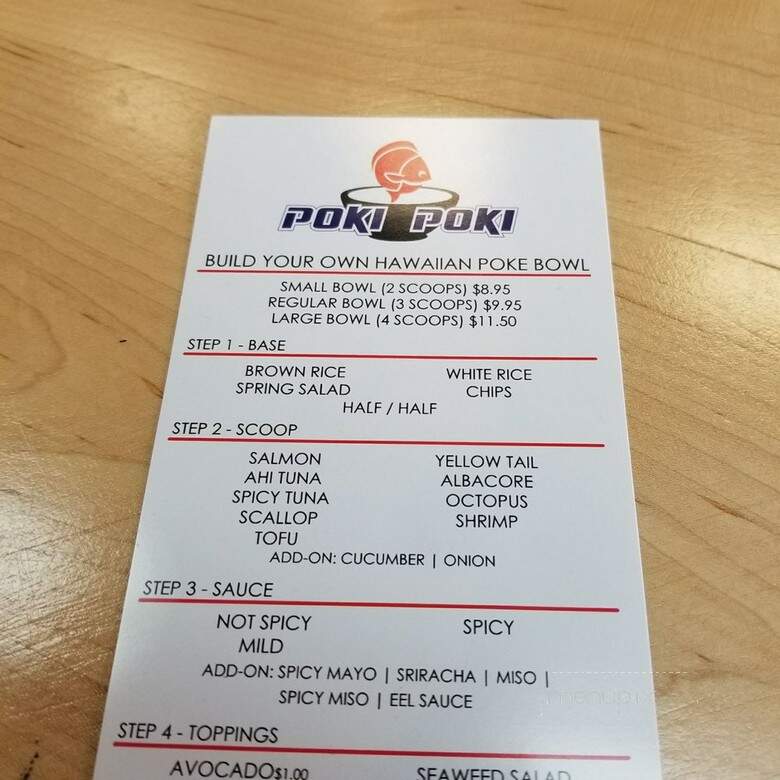 POKI POKI
BUILD YOUR OWN HAWAIIAN POKE BOWL
SMALL BOWL (2 SCOOPS) $8.95
REGULAR BOWL (3 SCOOPS) $9.95
LARGE BOWL (4 SCOOPS) $11.50
STEP 1 - BASE
BROWN RICE WHITE RICE
SPRING SALAD CHIPS
HALF / HALF
STEP 2 - SCOOP
SALMON YELLOW TAIL
AHI TUNA ALBACORE
SPICY TUNA OCTOPUS
SCALLOP SHRIMP
TOFU
ADD-ON: CUCUMBER | ONION
STEP 3 - SAUCE
NOT SPICY SPICY
MILD
ADD-ON: SPICY MAYO | SRIRACHA | MISO |
SPICY MISO | EEL SAUCE
STEP 4 - TOPPINGS
AVOCADO $1.00 SEAWEED SALAD